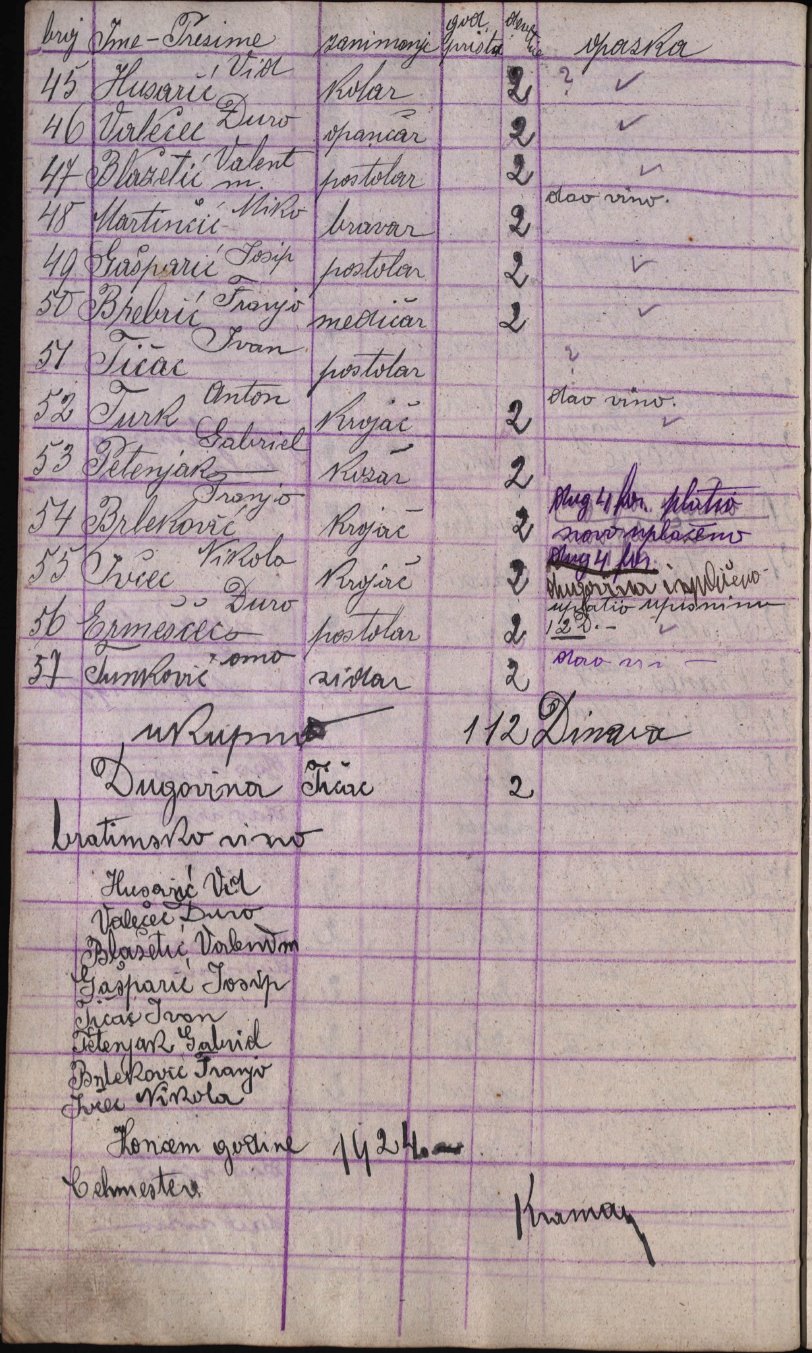 broj Ime-Presime zanimanje god. opaska
45 Husarić Vid kolar 2 ? ✓
46 Valečec Đuro opančar 2 ✓
47 Blažetić Valent m. postolar 2 ✓
48 Martinčić Miko bravar 2 dao vino.
49 Gašparić Josip postolar 2 ✓
50 Brebrić Franjo medičar 2 ✓
51 Tičac Ivan postolar ?
52 Turk Anton Krojač 2 dao vino. ✓
53 Petenjak Gabriel Kožar 2
54 Brleković Franjo Krojač 2 dug 4 for. platio
novo uplaćeno
55 Ivčec Nikola Krojač 2 dug 4 for.
dugovina
56 Ermeščec Đuro postolar 2 uplatio upisninu
12 D.- ✓
57 Tunković zidar 2 dao
ukupno 112 Dinara
Dugovina Tičac 2
bratimsko vino
Husarić Vid
Valečec Đuro
Blažetić Valentin
Gašparić Josip
Tičac Ivan
Petenjak Gabriel
Brleković Franjo
Ivčec Nikola
Koncem godine 1924.-
Cehmester